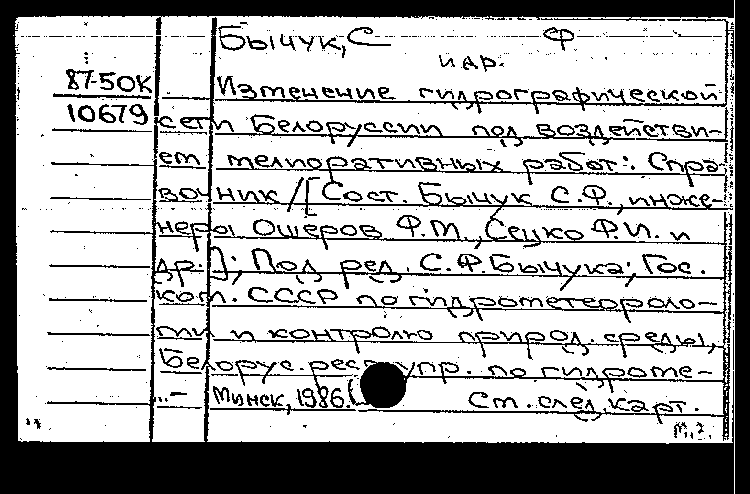 Бычук, С Ф
и др.
87-50К Изменение гидрографической
10679 сети Белоруссии под воздействи-
ем мелиоративных работ: Спра-
вочник / [Сост. Бычук С.Ф., инже-
неры Ошеров Ф.М., Сецко Ф.И. и
др.]; Под ред. С.Ф. Бычука; Гос.
ком. СССР по гидрометеороло-
гии и контролю природ. среды,
Белорус. респ. упр. по гидроме-
..- Минск, 1986. См. след. карт.